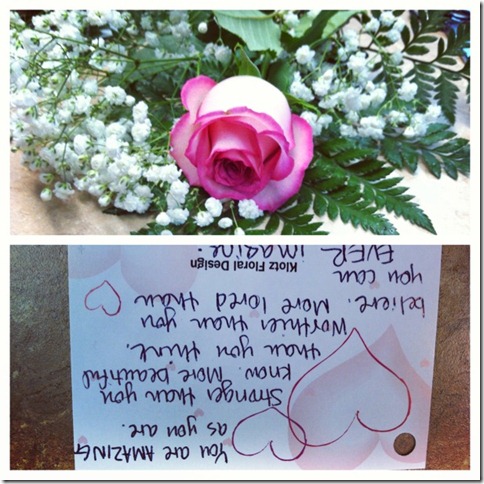 You are AMAZING
as you are.
Stronger than you
know. More beautiful
than you think.
Worthier than you
believe. More loved than
you can
EVER imagine.
Klotz Floral Design